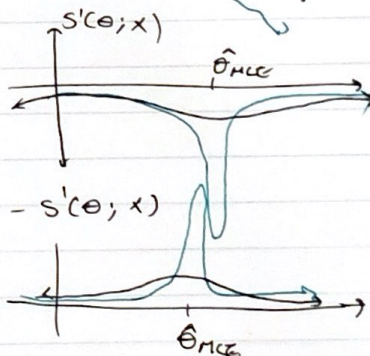 S'(θ; x)
θ̂MLE
- S'(θ; x)
θ̂MLE